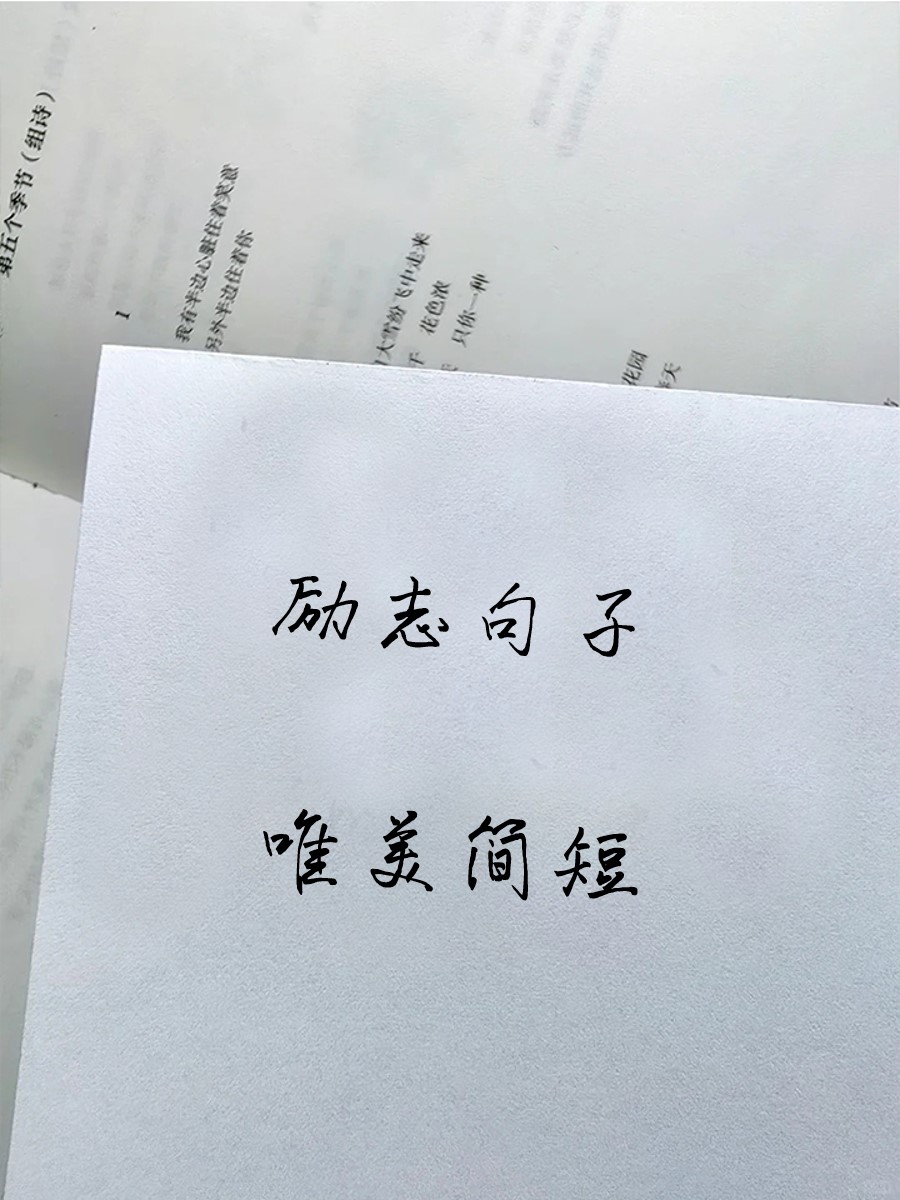 第五个季节（组诗）
1
我有半边心脏住着笑意
另外半边住着你
大雪纷飞中走来
花色浓
只你一种
花园
春天
励志句子
唯美简短